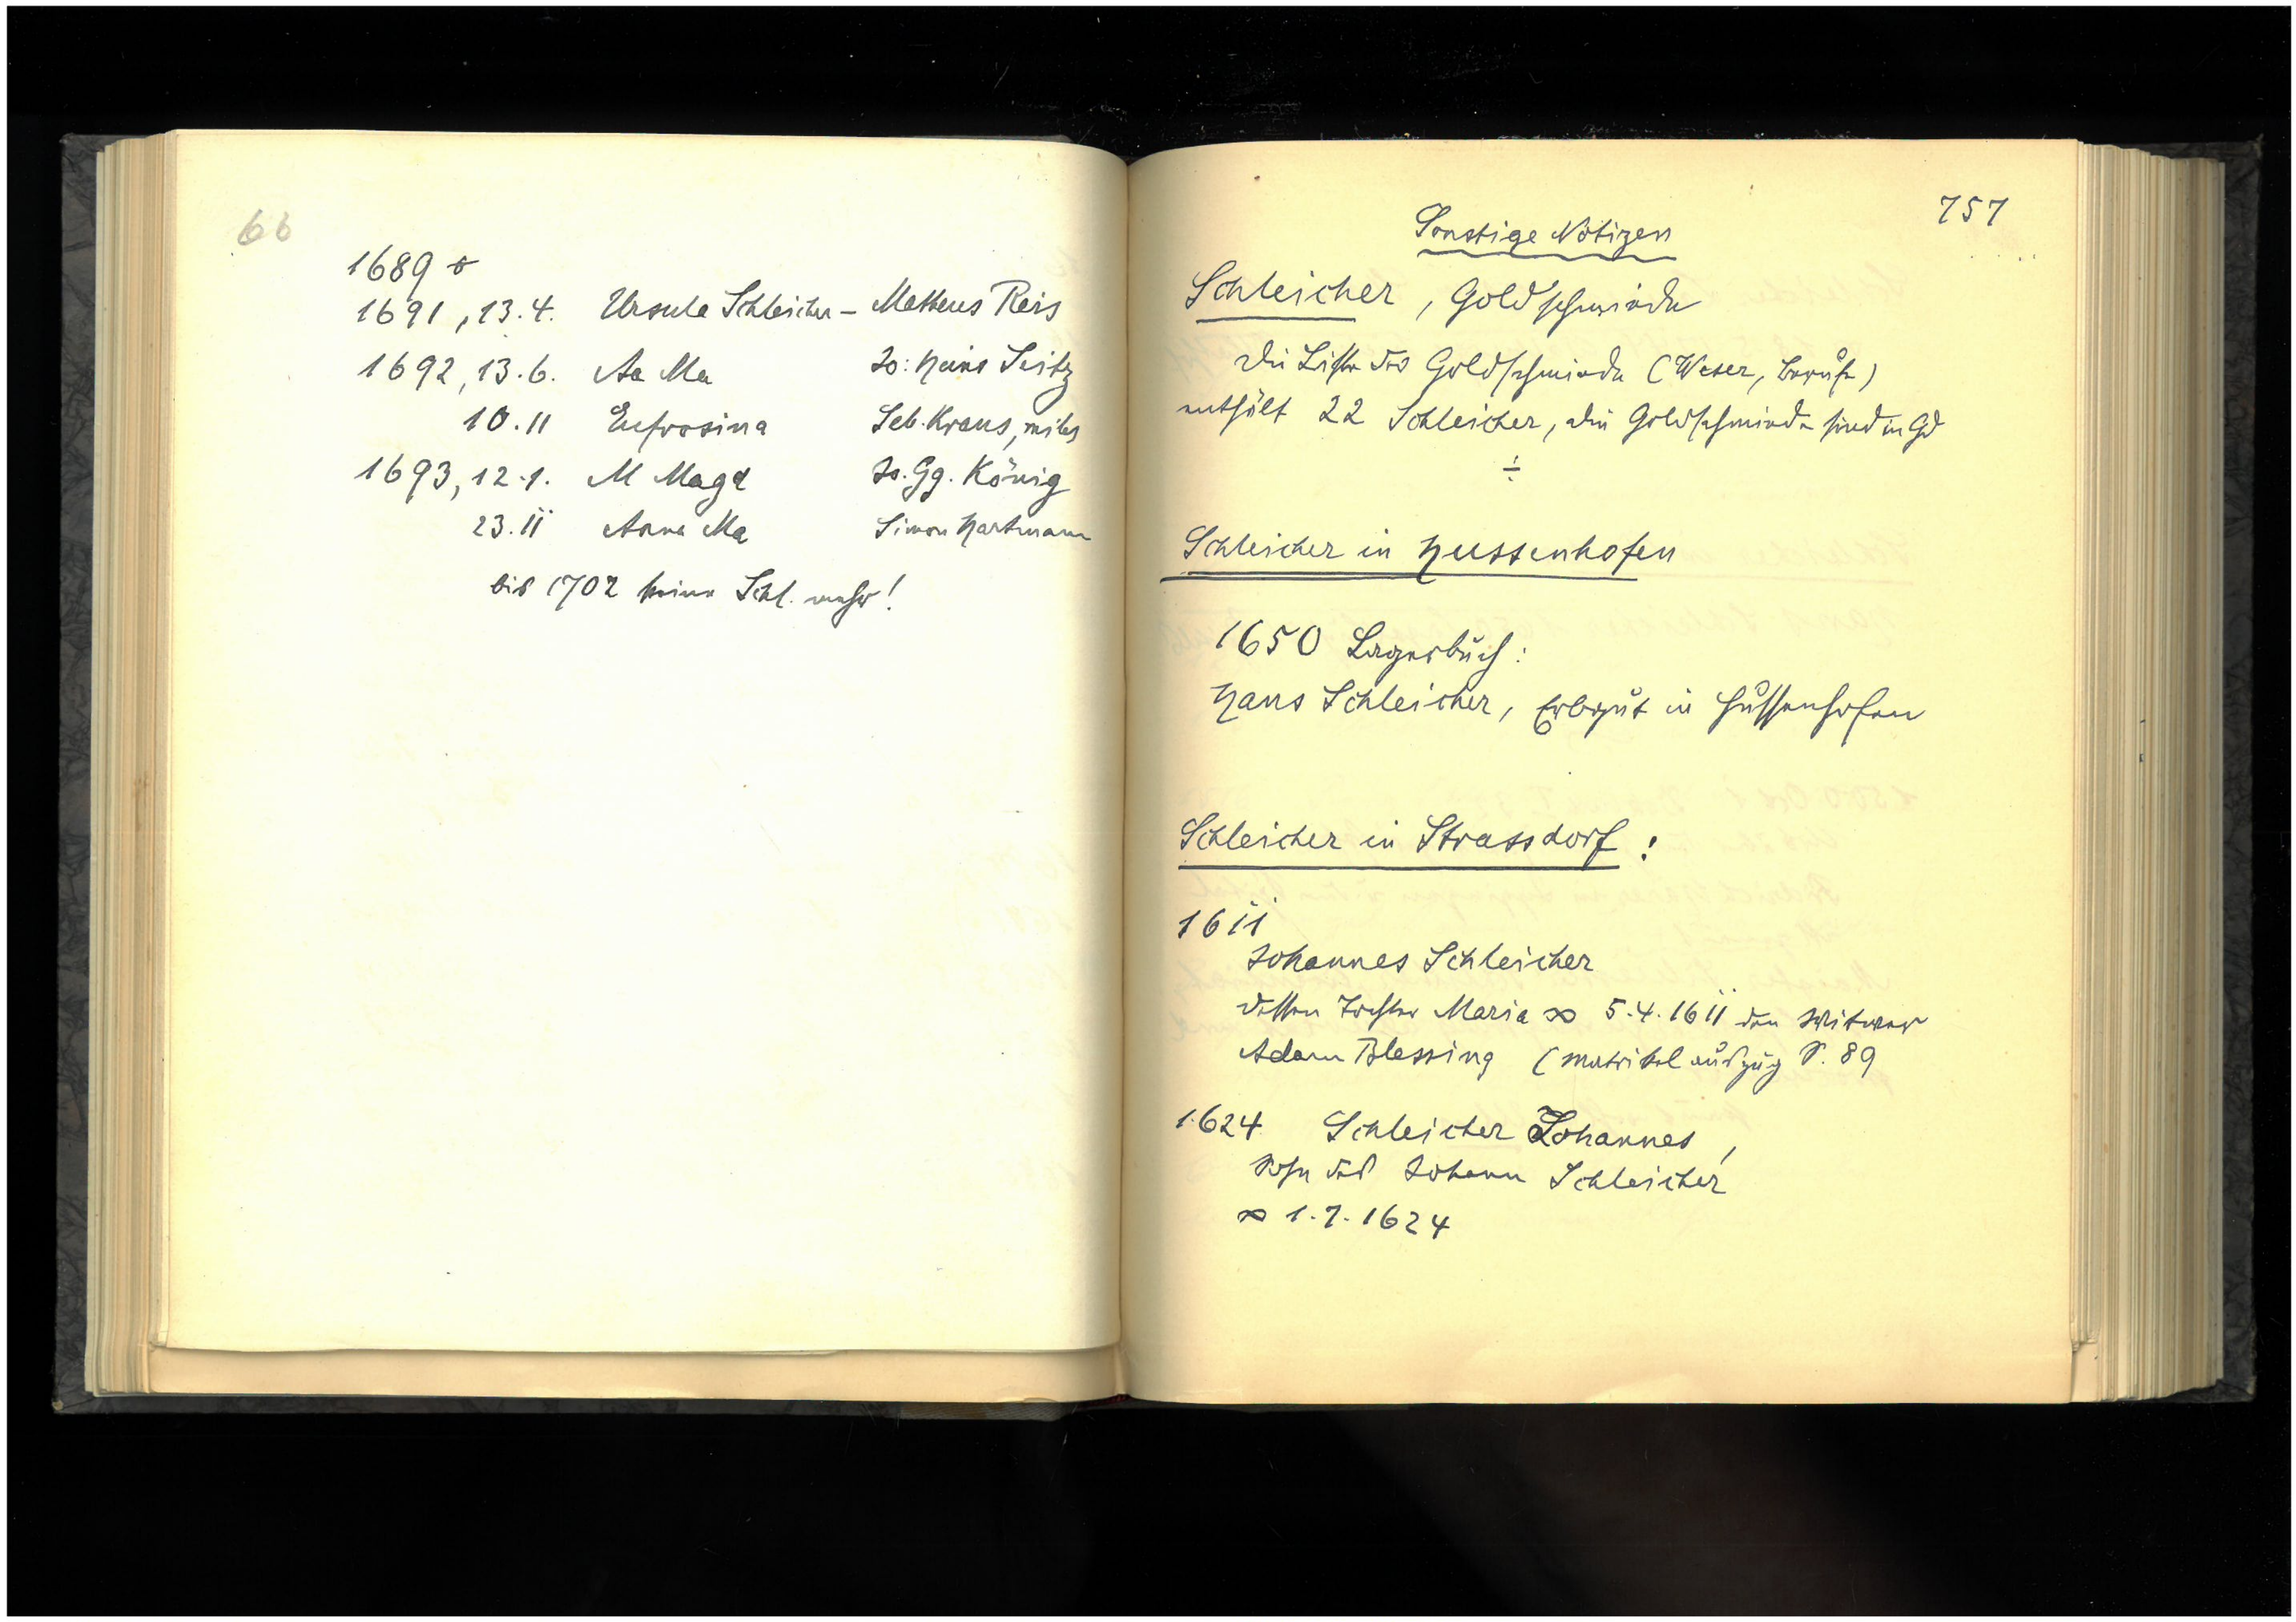 66
1689 ø
1691, 13.4. Ursula Schleicher – Mattheus Reis
1692, 13.6. Aa Ma Jo: Hans Seitz
10.11 Eufrosina Seb. Kraus, miles
1693, 12.1. M Magd Jo. Gg. König
23.11 Anna Ma Simon Hartmann
bis 1702 keine Schl. mehr!
757
Sonstige Notizen
Schleicher, Goldschmiede
Die Liste der Goldschmiede (Weser, Berufe)
enthält 22 Schleicher, die Goldschmiede sind in Gd
÷
Schleicher in Hussenhofen
1650 Lagerbuch:
Hans Schleicher, Erbgut in Hussenhofen
Schleicher in Strassdorf:
1611
Johannes Schleicher
dessen Tochter Maria ∞ 5.4.1611 den Witwer
Adam Blessing (Matrikelauszug S. 89
1624 Schleicher Johannes,
Sohn des Johann Schleicher
∞ 1.7.1624